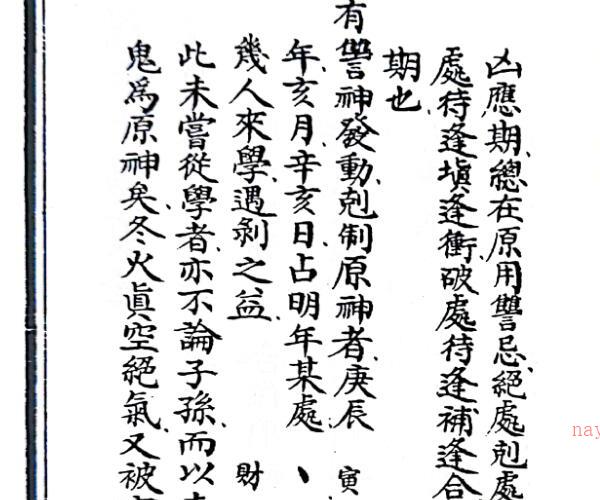 凶應期總在原用讐忌絕處剋處
處待逢塡逢衝破處待逢補逢合
期也
有讐神發動剋制原神者庚辰 寅
年亥月辛亥日占明年某處 、
幾人來學遇剝之益 財
此未嘗從學者亦不論子孫而以
鬼爲原神矣冬火眞空絕氣又被
nay